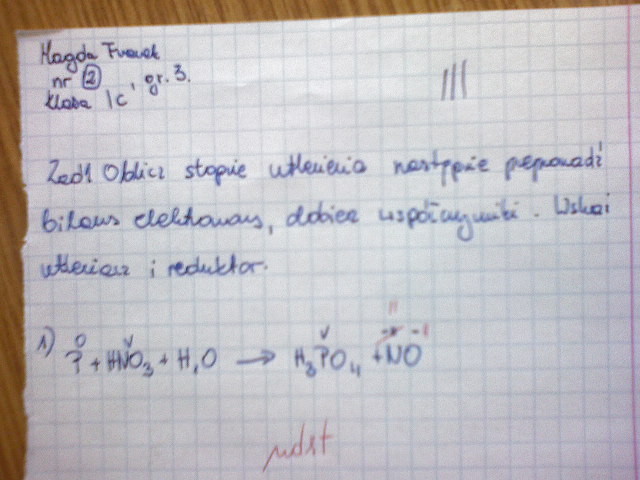 Magda
nr 2
klasa 1c' gr. 3.
III
Zad1 Oblicz stopnie utlenienia następnie przeprowadź
bilans elektronowy, dobierz współczynniki. Wskaż
utleniacz i reduktor.
II
0 V V -I
1) P + HNO3 + H2O → H3PO4 + NO
ndst